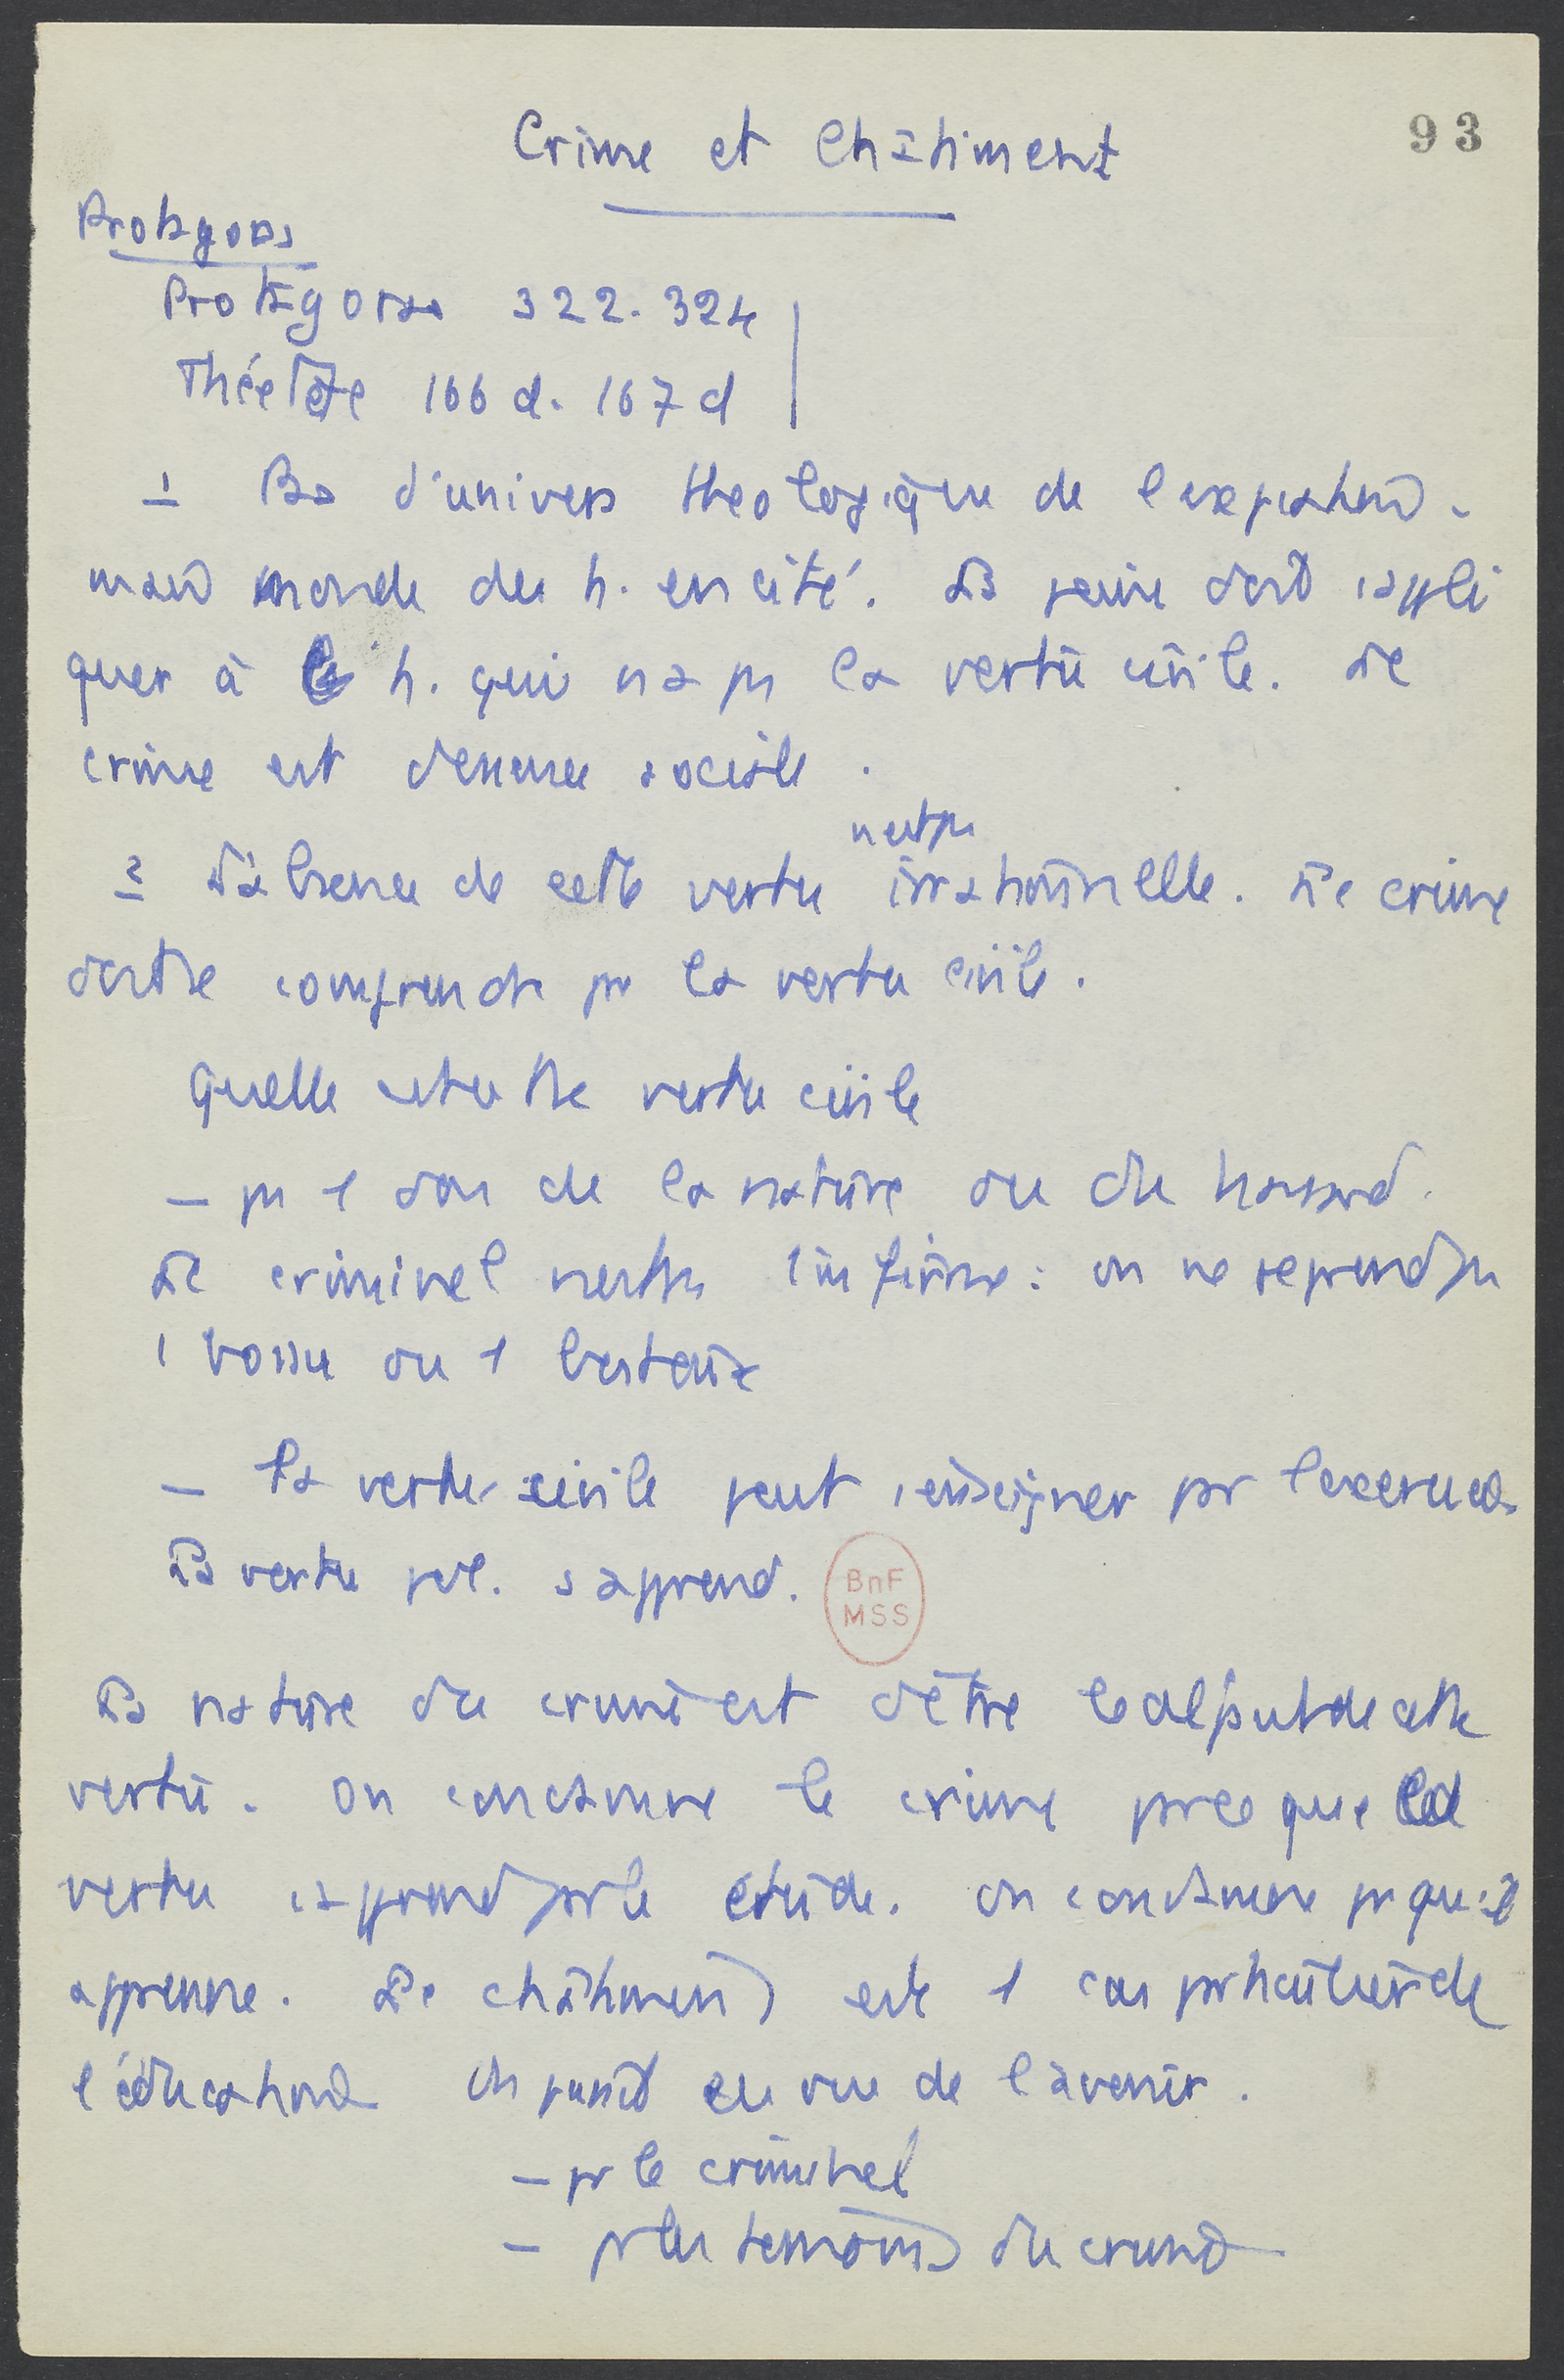 Crime et Châtiment
93
Protagoras
Protagoras 322. 324
Théétète 166 d. 167 d
1 Pas d'univers theologique de l'expiation.
mais monde des h. en cité. La peine doit s'appli
quer à le h. qui n'a pas la vertu civile. Le
crime est démesure sociale.
n'est pas
2 L'absence de cette vertu irrationnelle. Le crime
doit se comprendre par la vertu civile.
Quelle est cette vertu civile
- pas 1 don de la nature ou du hasard.
Le criminel n'est pas 1 infirme : on ne reprend pas
1 bossu ou 1 boiteux
- La vertu civile peut s'enseigner par l'exercice.
La vertu pol. s'apprend.
La nature du crime est d'être le défaut de cette
vertu. On condamne le crime parce que la
vertu s'apprend par l'étude. On condamne pr qu'il
apprenne. Le châtiment est 1 cas particulier de
l'éducation. On punit en vue de l'avenir.
- pr le criminel
- pr les témoins du crime
BnF
MSS